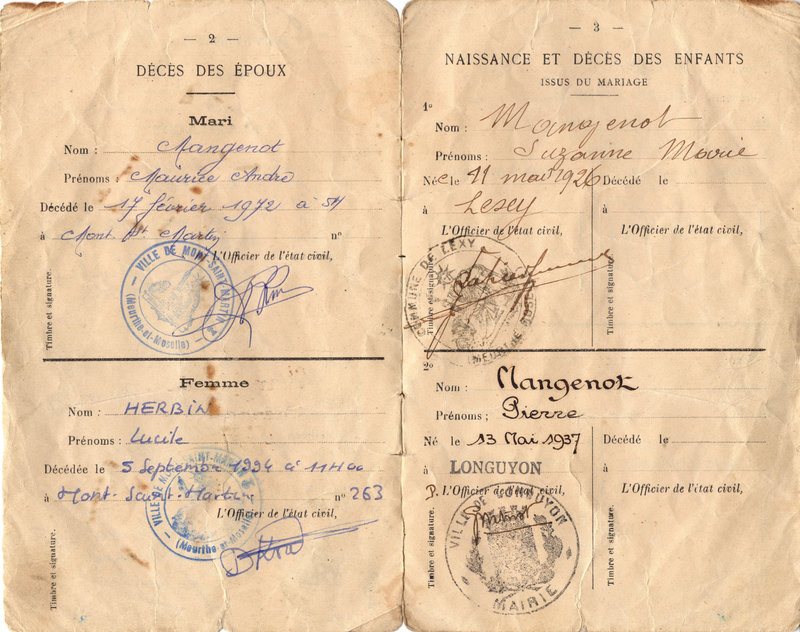 — 2 —
DÉCÈS DES ÉPOUX
Mari
Nom : Mangenot
Prénoms : Maurice André
Décédé le 17 février 1972 à 5H
à Mont St Martin n°
L'Officier de l'état civil,
Timbre et signature.
VILLE DE MONT-SAINT-MARTIN
(Meurthe-et-Moselle)
Femme
Nom : HERBIN
Prénoms : Lucile
Décédée le 5 Septembre 1994 à 11H00
à Mont-Saint-Martin n° 263
L'Officier de l'état civil,
Timbre et signature.
VILLE DE MONT-SAINT-MARTIN
(Meurthe-et-Moselle)
— 3 —
NAISSANCE ET DÉCÈS DES ENFANTS
ISSUS DU MARIAGE
1°
Nom : Mangenot
Prénoms : Suzanne Marie
Née le 11 mai 1926 Décédé le
à Lexy à
L'Officier de l'état civil, L'Officier de l'état civil,
Timbre et signature. Timbre et signature.
COMMUNE DE LEXY
2°
Nom : Mangenot
Prénoms ; Pierre
Né le 13 Mai 1937 Décédé le
à LONGUYON à
P. L'Officier de l'état civil, L'Officier de l'état civil,
Timbre et signature. Timbre et signature.
VILLE DE LONGUYON
MAIRIE